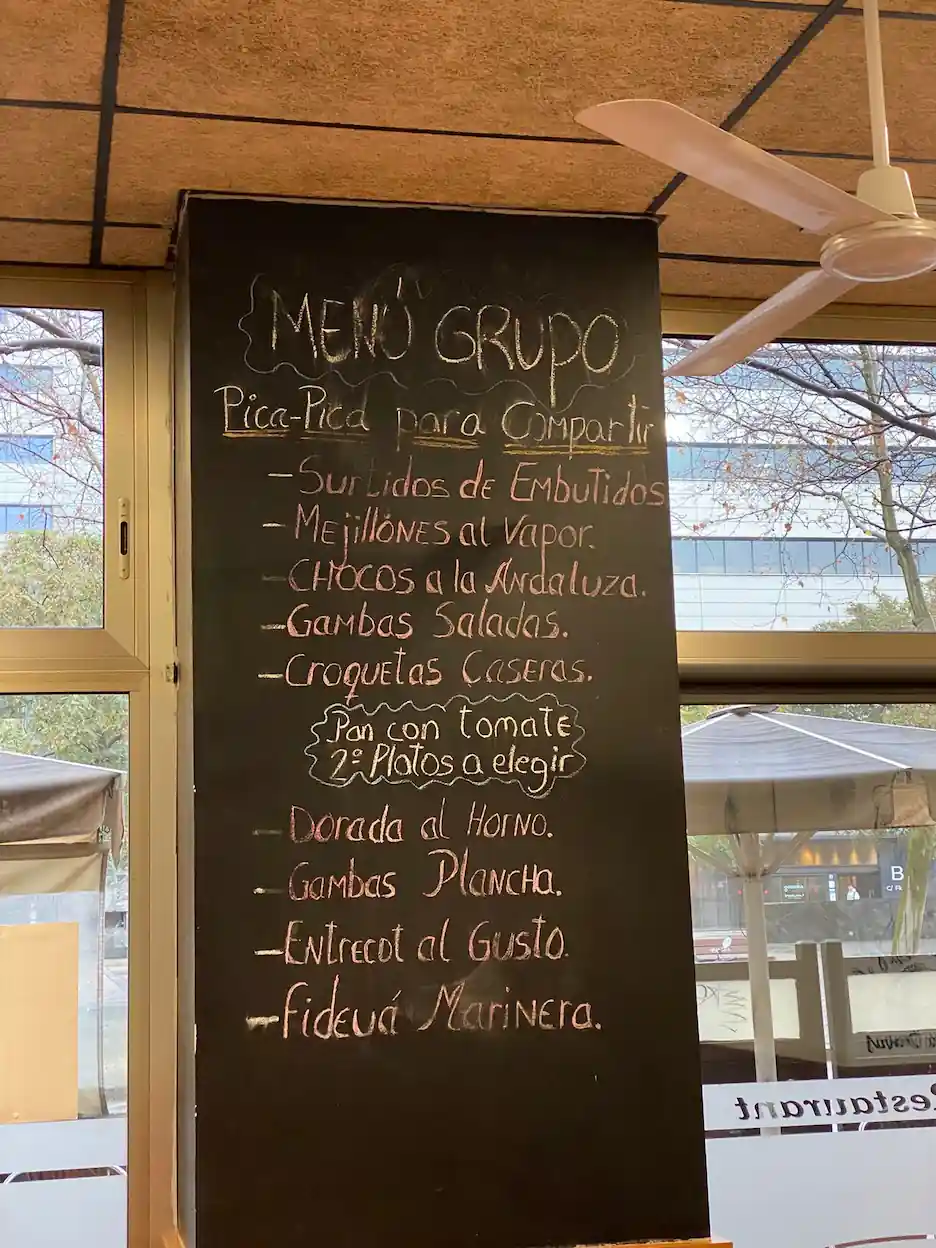 MENÚ GRUPO
Pica-Pica para Compartir
- Surtidos de Embutidos
- Mejillones al Vapor.
- CHOCOS a la Andaluza.
- Gambas Saladas.
- Croquetas Caseras.
Pan con tomate
2º Platos a elegir
- Dorada al Horno.
- Gambas Plancha.
- Entrecot al Gusto.
- Fideuá Marinera.
B
Restaurant